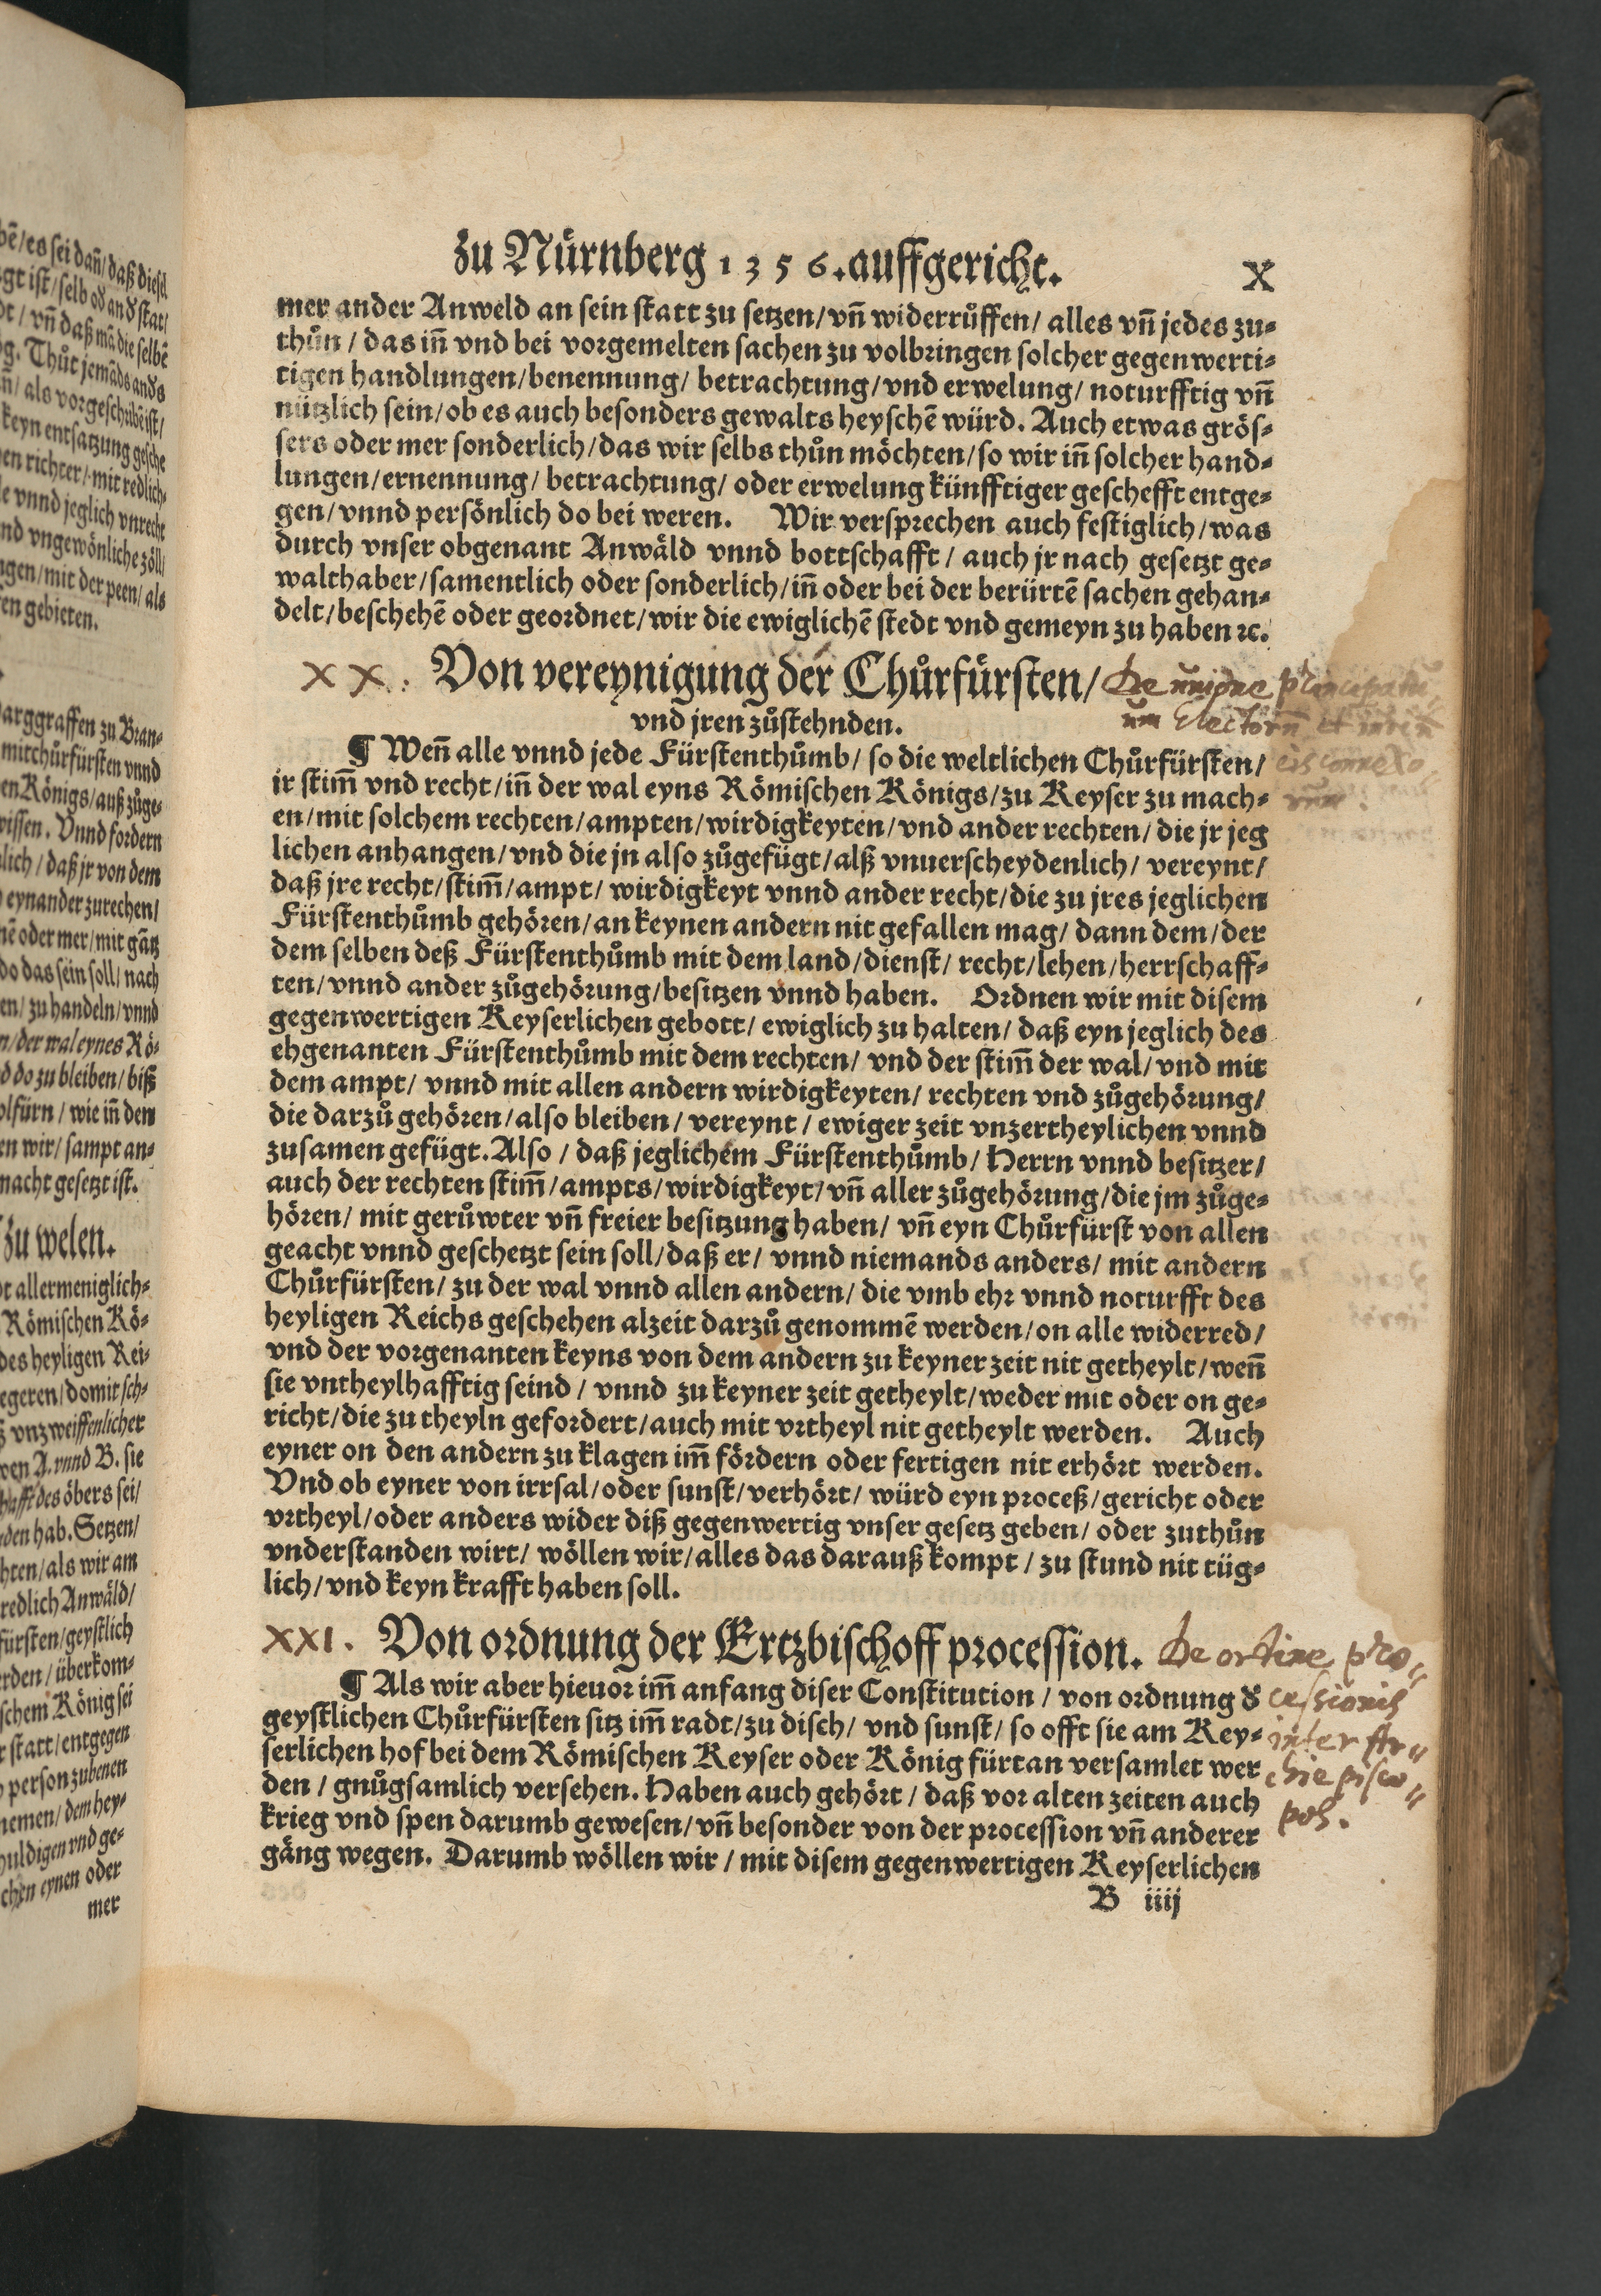 zu Nůrnberg 1356. auffgericht. X
mer ander Anweld an sein statt zu setzen/ vñ widerrůffen/ alles vñ jedes zu⸗
thůn / das iñ vnd bei vorgemelten sachen zu volbringen solcher gegenwerti⸗
tigen handlungen/benennung/ betrachtung/ vnd erwelung/ noturfftig vñ
nützlich sein/ ob es auch besonders gewalts heyschē würd. Auch etwas grös⸗
sers oder mer sonderlich/das wir selbs thůn möchten/so wir iñ solcher hand⸗
lungen/ernennung/ betrachtung/ oder erwelung künfftiger geschefft entge⸗
gen/ vnnd persönlich do bei weren. Wir versprechen auch festiglich/ was
durch vnser obgenant Anwäld vnnd bottschafft / auch jr nach gesetzt ge⸗
walthaber/samentlich oder sonderlich/iñ oder bei der berürtē sachen gehan⸗
delt/beschehē oder geordnet/wir die ewiglichē stedt vnd gemeyn zu haben ⁊c.
XX. Von vereynigung der Chůrfürsten/ De unione principatu
vnd jren zůstehnden. um Electorū et
¶ Weñ alle vnnd jede Fürstenthůmb/ so die weltlichen Chůrfürsten/ eis connexo
ir stim̄ vnd recht/ iñ der wal eyns Römischen Königs/zu Keyser zu mach⸗ rum.
en/mit solchem rechten/ampten/wirdigkeyten/vnd ander rechten/ die jr jeg
lichen anhangen/ vnd die jn also zůgefügt/alß vnuerscheydenlich/ vereynt/
daß jre recht/stim̄/ampt/ wirdigkeyt vnnd ander recht/die zu jres jeglichen
Fürstenthůmb gehören/an keynen andern nit gefallen mag/ dann dem/der
dem selben deß Fürstenthůmb mit dem land/dienst/ recht/lehen/herrschaff⸗
ten/ vnnd ander zůgehörung/besitzen vnnd haben. Ordnen wir mit disem
gegenwertigen Keyserlichen gebott/ ewiglich zu halten/ daß eyn jeglich des
ehgenanten Fürstenthůmb mit dem rechten/ vnd der stim̄ der wal/ vnd mit
dem ampt/ vnnd mit allen andern wirdigkeyten/ rechten vnd zůgehörung/
die darzů gehören/also bleiben/ vereynt / ewiger zeit vnzertheylichen vnnd
zusamen gefügt. Also / daß jeglichem Fürstenthůmb/ Herrn vnnd besitzer/
auch der rechten stim̄/ampts/wirdigkeyt/vñ aller zůgehörung/die jm zůge⸗
hören/ mit gerůwter vñ freier besitzung haben/ vñ eyn Chůrfürst von allen
geacht vnnd geschetzt sein soll/daß er/ vnnd niemands anders/ mit andern
Chůrfürsten/ zu der wal vnnd allen andern/ die vmb ehr vnnd noturfft des
heyligen Reichs geschehen alzeit darzů genommē werden/on alle widerred/
vnd der vorgenanten keyns von dem andern zu keyner zeit nit getheylt/weñ
sie vntheylhafftig seind / vnnd zu keyner zeit getheylt/weder mit oder on ge⸗
richt/die zu theyln gefordert/auch mit vrtheyl nit getheylt werden. Auch
eyner on den andern zu klagen im̄ fördern oder fertigen nit erhört werden.
Vnd ob eyner von irrsal/oder sunst/verhört/ würd eyn proceß/gericht oder
vrtheyl/oder anders wider diß gegenwertig vnser gesetz geben/ oder zuthůn
vnderstanden wirt/ wöllen wir/alles das darauß kompt / zu stund nit tüg⸗
lich/ vnd keyn krafft haben soll.
XXI. Von ordnung der Ertzbischoff procession. De ordine pro⸗
¶ Als wir aber hieuor im̄ anfang diser Constitution / von ordnung d' cessionis
geystlichen Chůrfürsten sitz im̄ radt/zu disch/ vnd sunst/ so offt sie am Key⸗ inter Ar⸗
serlichen hof bei dem Römischen Keyser oder König fürtan versamlet wer chiepisco⸗
den / gnůgsamlich versehen. Haben auch gehört / daß vor alten zeiten auch pos.
krieg vnd spen darumb gewesen/ vñ besonder von der procession vñ anderer
gäng wegen. Darumb wöllen wir / mit disem gegenwertigen Keyserlichen
B iiij